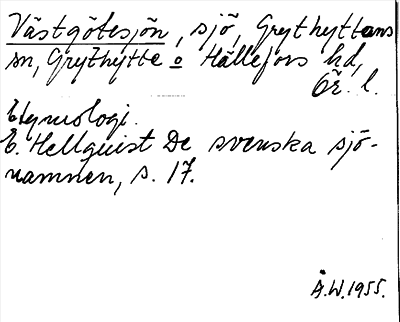 Västgötesjön, sjö, Grythyttans
sn, Grythytte o Hällefors hd,
Ör. l.
Etymologi.
E. Hellquist De svenska sjö-
namnen, s. 17.
Å.W. 1955.